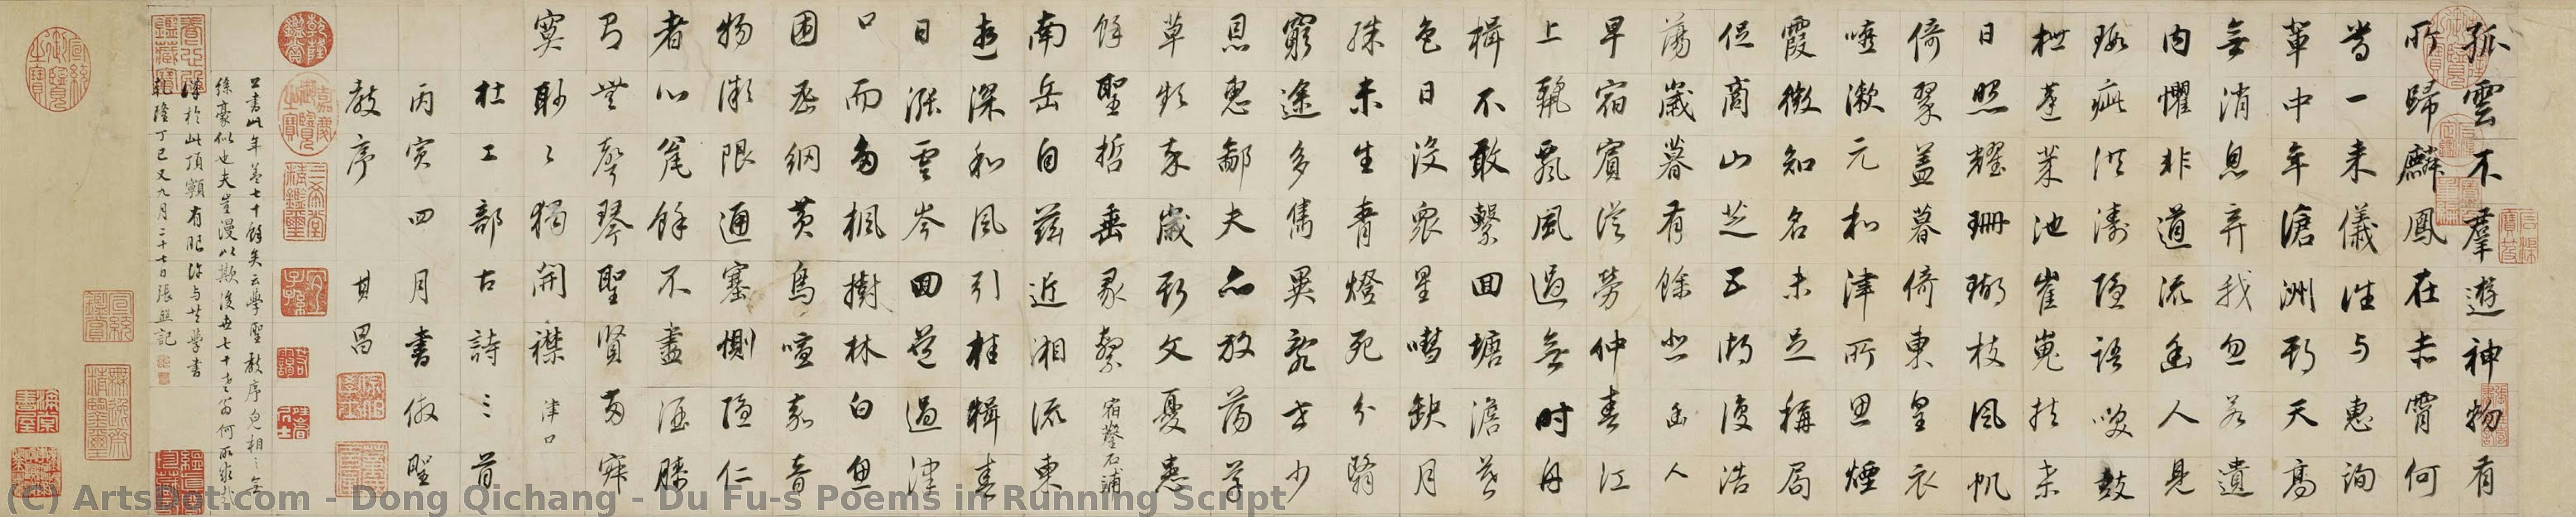 孤雲不羣遊神物有
所歸麟鳳在赤霄何
當一來儀性与惠詢
輩中年滄洲期天高
無消息弃我忽若遺
内懼非道流幽人見
瑕疵洪濤隱語笑鼓
枻蓬莱池崔嵬扶桑
日照耀珊瑚枝風帆
倚翠盖暮倚東皇衣
嚥漱元和津所思煙
霞微知名未足稱局
促商山芝五湖復浩
蕩歲暮有餘悲幽人
早宿賓從勞仲春江
上麗飄風過無時舟
楫不敢繫回塘澹暮
色日没衆星嘒缺月
殊未生青燈死分翳
窮途多儁異亂世少
恩惠鄙夫亦放蕩草
草頻卒歲斯文憂患
餘聖哲垂彖繫 宿鑿石浦
南岳自兹近湘流東
逝深和風引桂楫春
日漲雲岑回道過津
口而多楓樹林白魚
困密網黄鳥喧嘉音
物微限通塞惻隱仁
者心瓮餘不盡酒膝
有無聲琴聖賢兩寂
寞眇々獨開襟 津口
杜工部古詩三首
丙寅四月書倣聖
教序 其昌
書此年葢七十餘矣云學聖教序皃相々無
絲豪似也夫豈漫以欺後世七十老翁何所求哉
於此頂有眼許与共學書
乾隆丁巳又九月二十七日張照記
(C) ArtsDot.com - Dong Qichang - Du Fu-s Poems in Running Script